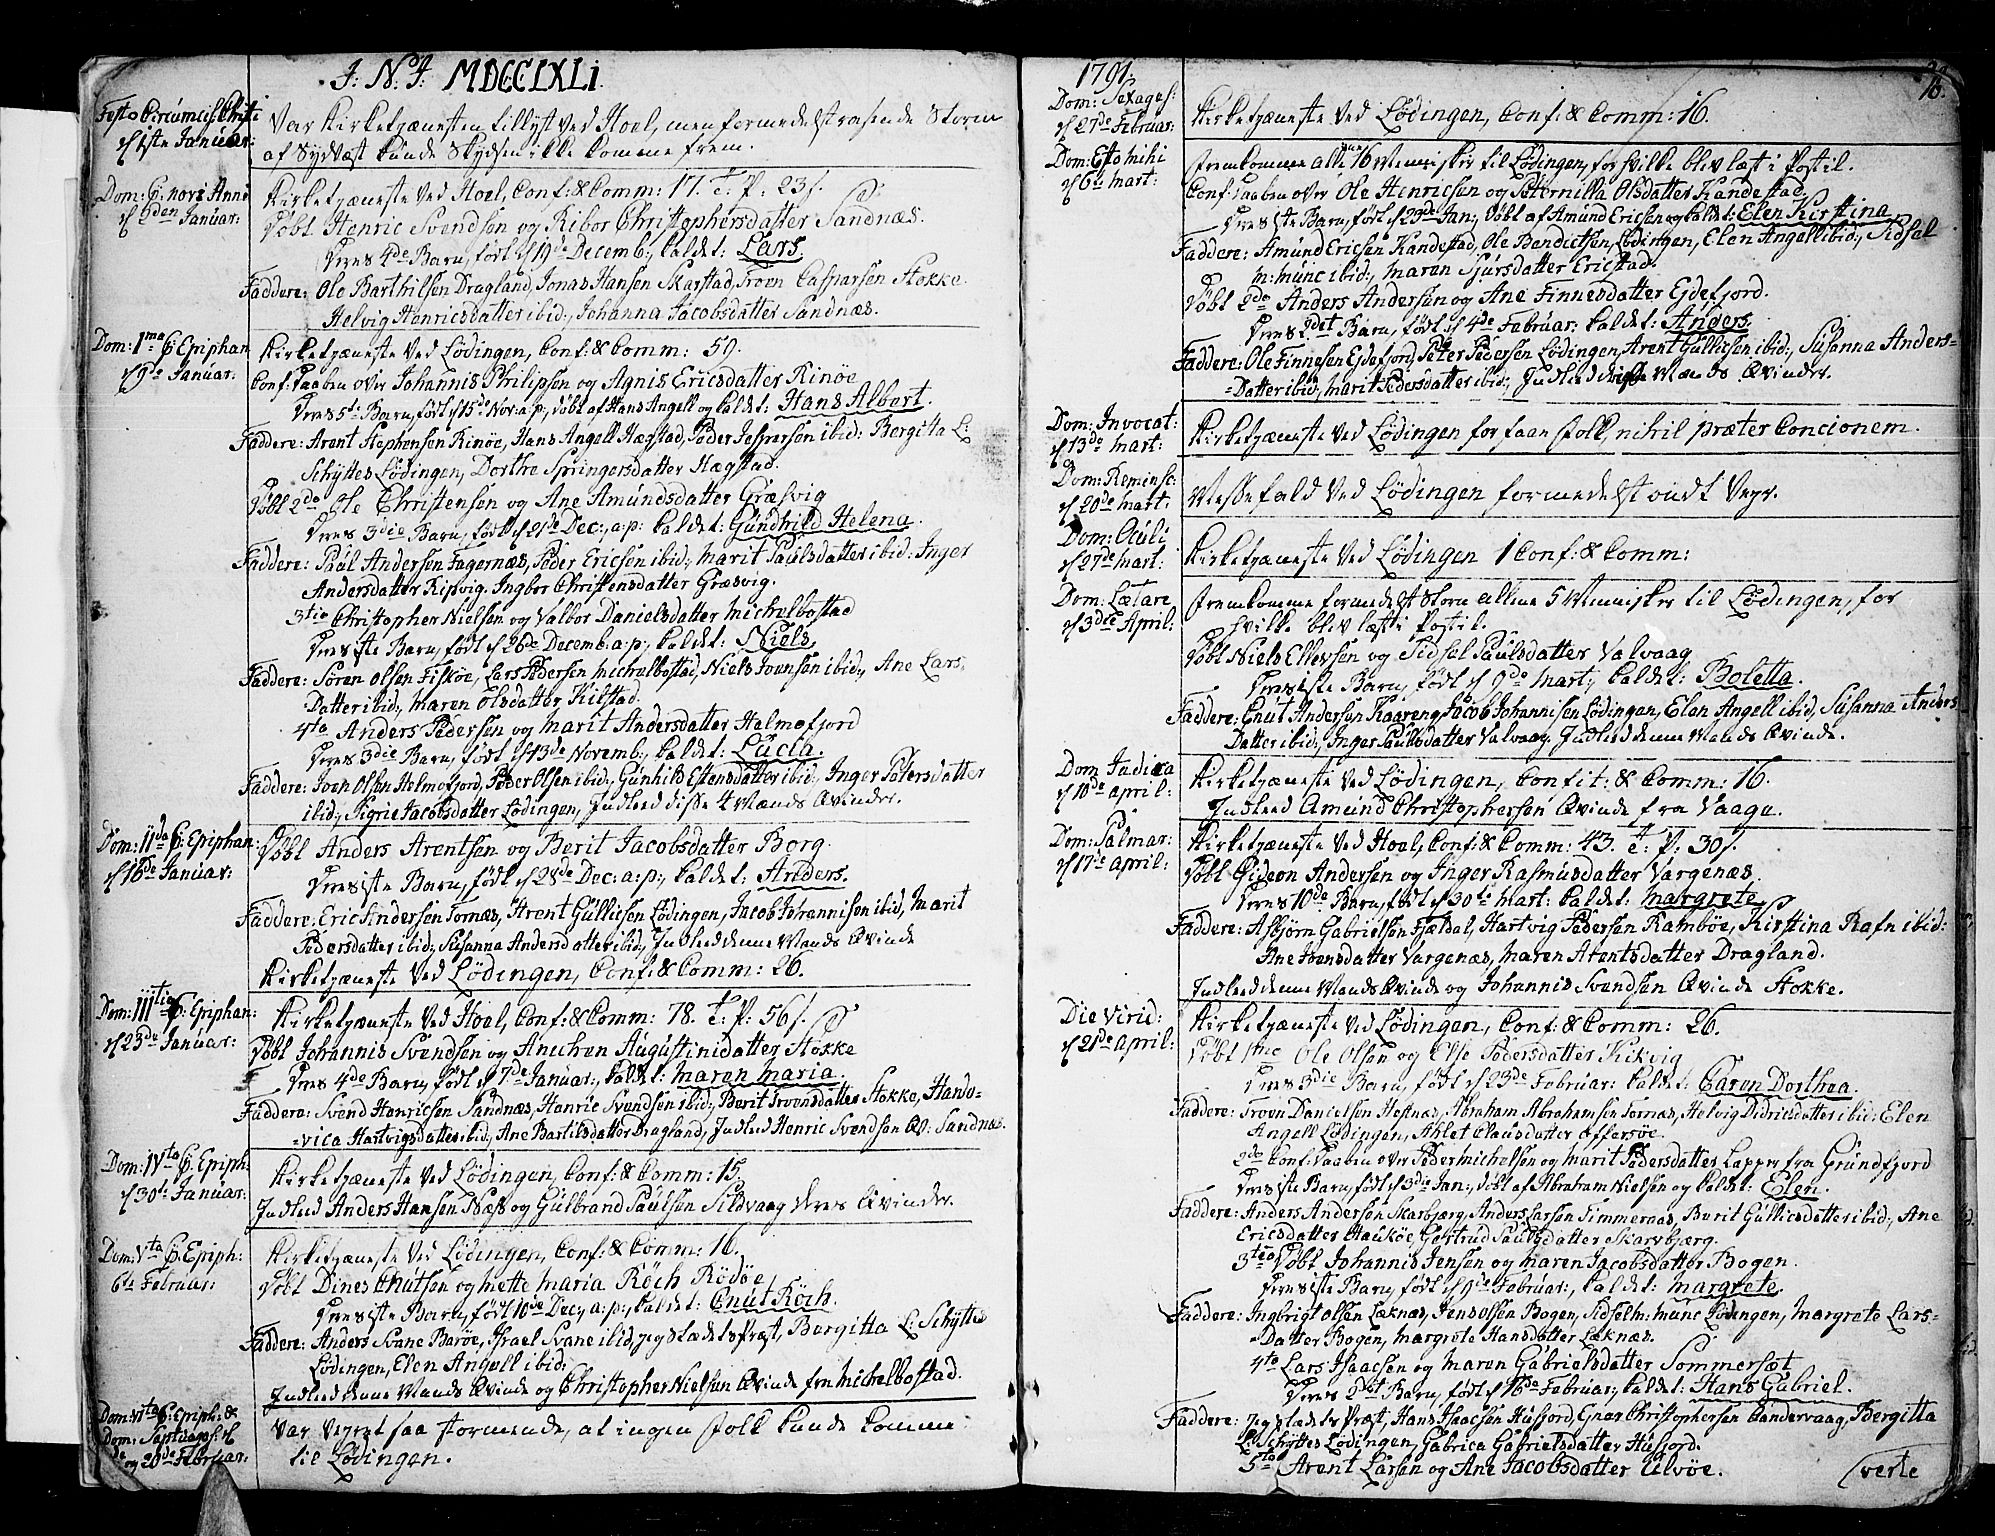 J: N: J: MDCCLXLi
Festo Circumcis: Christi
d 1ste Januar:
Var Kirketjænesten tillyst ved Hoel, men formedelst rasende Storm
af Sydvest kunde Skydsen ikke komme frem.
Dom: p: novi Anni
d 2den Januar:
Kirketjæneste ved Hoel, Conf: & Comm: 17. T: P: 23 s.
Døbt Henric Svendsen og Ribor Christophersdatter Sandnæs.
Deres 4de Barn, født d 19de Decemb:, kaldet: Lars.
Faddere: Ole Barthilsen Dragland, Jonas Hansen Skarstad, Troen Casparsen Stokke.
Helvig Henricsdatter ibid:, Johanna Jacobsdatter Sandnæs.
Dom: 1ma p: Epiphan
d 9de Januar:
Kirketjæneste ved Lødingen, Conf: & Comm: 59.
Conf: Daaben over Johannis Philipsen og Agnis Ericsdatter Rinøe
Deres 5te Barn, født d 15de Nov: a: p:, døbt af Hans Angell og kaldet: Hans Albert.
Faddere: Arent Stephensen Rinøe, Hans Angell Hægstad, Peder Jespersen ibid: Bergitta L:
Schyttes Lødingen, Dorthe Springersdatter Hægstad.
Døbt 2do Ole Christensen og Ane Amundsdatter Græsvig
Deres 3die Barn, født d 21de Dec:, a: p: kaldet: Gundhild Helena.
Faddere: Paul Andersen Fagernæs, Peder Ericsen ibid:, Marit Paulsdatter ibid: Inger
Andersdatter Ripvig. Ingbor Christensdatter Græsvig.
3tio Christopher Nielsen og Valbor Danielsdatter Michelbostad
Deres 1ste Barn, født d 26de Decemb: a: p:, kaldet: Niels.
Faddere: Søren Olsen Fiskøe, Lars Pedersen Michelbostad, Niels Ivensen ibid:, Ane Lars-
Datter ibid:, Maren Olsdatter Kilstad.
4to Anders Pedersen og Marit Andersdatter Halmefjord
Deres 3die Barn, født d 13de Novemb:, kaldet: Lucia.
Faddere: Iven Olsen Helmofjord, Peder Olsen ibid:, Gunhild Ellensdatter ibid:, Inger Petersdatter
ibid:, Sigrie Jacobsdatter Lødingen, Indleed disse 4 Mænds Qvinder.
Dom: IIda p: Epiphan:
d 16de Januar:
Døbt Anders Arentsen og Berit Jacobsdatter Borg.
Deres 1ste Barn, født d 28de Dec: a: p:, kaldet: Anders.
Faddere: Eric Andersen Fornæs, Arent Gullicsen Lødingen, Jacob Johannisen ibid, Marit
Pedersdatter ibid:, Susanna Andersdatter ibid:, Indleed denne Mands Qvinde
Kirketjæneste ved Lødingen, Conf: & Comm: 26.
Dom: IIItia p: Epiphan:
d 23de Januar:
Kirketjæneste ved Hoel, Conf: & Comm: 78. T: P: 56 s.
Døbt Johannis Svendsen og Anichen Augustinidatter Stokke
Deres 4de Barn, født d 7de Januar:, kaldet: Maren Maria.
Faddere: Svend Henricsen Sandnæs, Henric Svendsen ibid:, Berit Troensdatter Stokke, Hand-
=vica Hartvigsdatter ibid:, Ane Bartilsdatter Dragland, Indleed Henric Svendsen Qv: Sandnæs.
Dom: IVta p: Epiph:
d 30te Januar:
Kirketjæneste ved Lødingen, Conf: & Comm: 15.
Indleed Anders Hansen Næss og Gulbrand Paulsen Sildvaag deres Qvinder.
Dom: Vta p: Epiph:
6te Februar:
Kirketjæneste ved Lødingen, Conf: & Comm: 16.
Døbt Dines Cnutsen og Mette Maria Röch Rödøe
Deres 1ste Barn, født 10de Dec: a: p:, kaldet: Cnut Röch.
Faddere: Anders Svane Barøe, Israel Svane ibid, jeg Stædets Præst, Bergitta L: Schyttes
Lødingen, Elen Angell ibid:
Indleed denne Mands Qvinde og Christopher Nielsen Qvinde fra Michelbostad.
Dom: VIta p: Epiph: &
Dom: Septuages: d
og 20de Februar:
Var Veyret saa stormende, at ingen folk kunde komme
til Lødingen.
1791.
Dom: Sexages:
d 27de Februar:
Kirketjæneste ved Lødingen, Conf: & Comm: 16.
Dom: Esto mihi
d 6te Mart:
Fremkomme alle 16 Mennisker til Lødingen, for hvilke blev læst i Postil.
Conf: Daaben over Ole Henricsen og Peternilla Olsdatter Kandestad.
Deres 1ste Barn, født d 23de Jan:, døbt af Amund Ericsen og kaldet: Elen Kirstina.
Faddere: Amund Ericsen Kandestad, Ole Bendictsen Lødingen, Elen Angell ibid:, Sidsel
M: Munc ibid:, Maren Sjursdatter Ericstad.
Døbt 2do Anders Andersen og Ane Finnesdatter Ejdefjord.
Deres 2det Barn, født d 4de Februar: kaldet: Anders.
Faddere: Ole Finnesen Ejdefjord, Peter Pedersen Lødingen, Arent Gullicsen ibid:, Susanna Anders=
=Datter ibid, Marit Pedersdatter ibid:, Indleed disse Mænds Qvinder.
Dom: Invocat:
d 13de Mart:
Kirketjæneste ved Lødingen for faae folk, nihil præter Concionem.
Dom: Reminsc:
d 20de Mart:
Messefald ved Lødingen formedelst ondt Veyr.
Dom: Oculi
d 27de Mart:
Kirketjæneste ved Lødingen 1 Conf: & Comm:
Dom: Lætare
d 3die April:
Fremkomme formedelst Storm allene 5 Mennisker til Lødingen, for
hvilke blev læst i Postil.
Døbt Niels Ellevsen og Sidsel Paulsdatter Valvaag
Deres 1ste Barn, født d 9de Mart:, kaldet: Boletta.
Faddere: Cnut Andersen Kaareng, Jacob Johannisen Lødingen, Elen Angell ibid, Susanna Anders
Datter ibid:, Inger Paulsdatter Valvaag, Indleed denne Mands Qvinde.
Dom Judica
d 10de April:
Kirketjæneste ved Lødingen, Confit: & Comm: 16.
Indleed Amund Christophersen Qvinde fra Vaage.
Dom: Palmar:
d 17de April:
Kirketjæneste ved Hoel, Conf: & Comm: 43. T: P: 30 s.
Døbt Gideon Andersen og Inger Rasmusdatter Vargenæs.
Deres 10de Barn, født d 30te Mart: kaldet: Margrete
Faddere: Asbjørn Gabrielsen Fjældal, Hartvig Pedersen Rambøe, Kirstina Rafn ibid:
Ane Ivensdatter Vargenæs, Maren Arentsdatter Dragland.
Indleed denne Mands Qvinde og Johannis Svendsens Qvinde Stokke.
Die Virid:
d 21de April:
Kirketjæneste ved Lødingen, Conf: & Comm: 26.
Døbt 1mo Ole Olsen og Else Pedersdatter Kikvig
Deres 3die Barn, født d 23de Februar: kaldet: Caren Dorthea.
Faddere: Troen Danielsen Hestnæs, Abraham Abrahamsen Fornæs, Helvig Didricsdatter ibid: Elen
Angell Lødingen, Ahlet Clausdatter Offersøe.
2do Conf: Daaben over Peder Michelsen og Marit Pedersdatter Lapper fra Grundfjord
Deres 1ste Barn, født d 3die Jan:, døbt af Abraham Nielsen og kaldet: Elen.
Faddere: Anders Andersen Skarbjerg, Anders Larsen Timmernæs, Berit Gullicsdatter ibid:, Ane
Ericsdatter Haukøe, Gertrud Paulsdatter Skarvbjærg.
3tio Døbt Johannis Jensen og Maren Jacobsdatter Bogen.
Deres 1ste Barn, født d 9de Februar:, kaldet: Margrete
Faddere: Ingbrigt Olsen Læknæs, Jens Olsen Bogen, Sidsel M: Munc Lødingen, Margrete Lars-
Datter Bogen, Margrete Hansdatter Læknæs.
4to Lars Isacsen og Maren Gabrielsdatter Sommersæt
Deres 2det Barn, født d 16de Februar:, kaldet: Hans Gabriel.
Faddere: jeg Stædets Præst, Hans Isaacsen Husjord, Ejnar Christophersen Sandervaag, Bergitta
L: Schyttes Lødingen, Gabrica Gabrielsdatter Husjord.
5to Arent Larsen og Ane Jacobsdatter Ulvøe.
verte